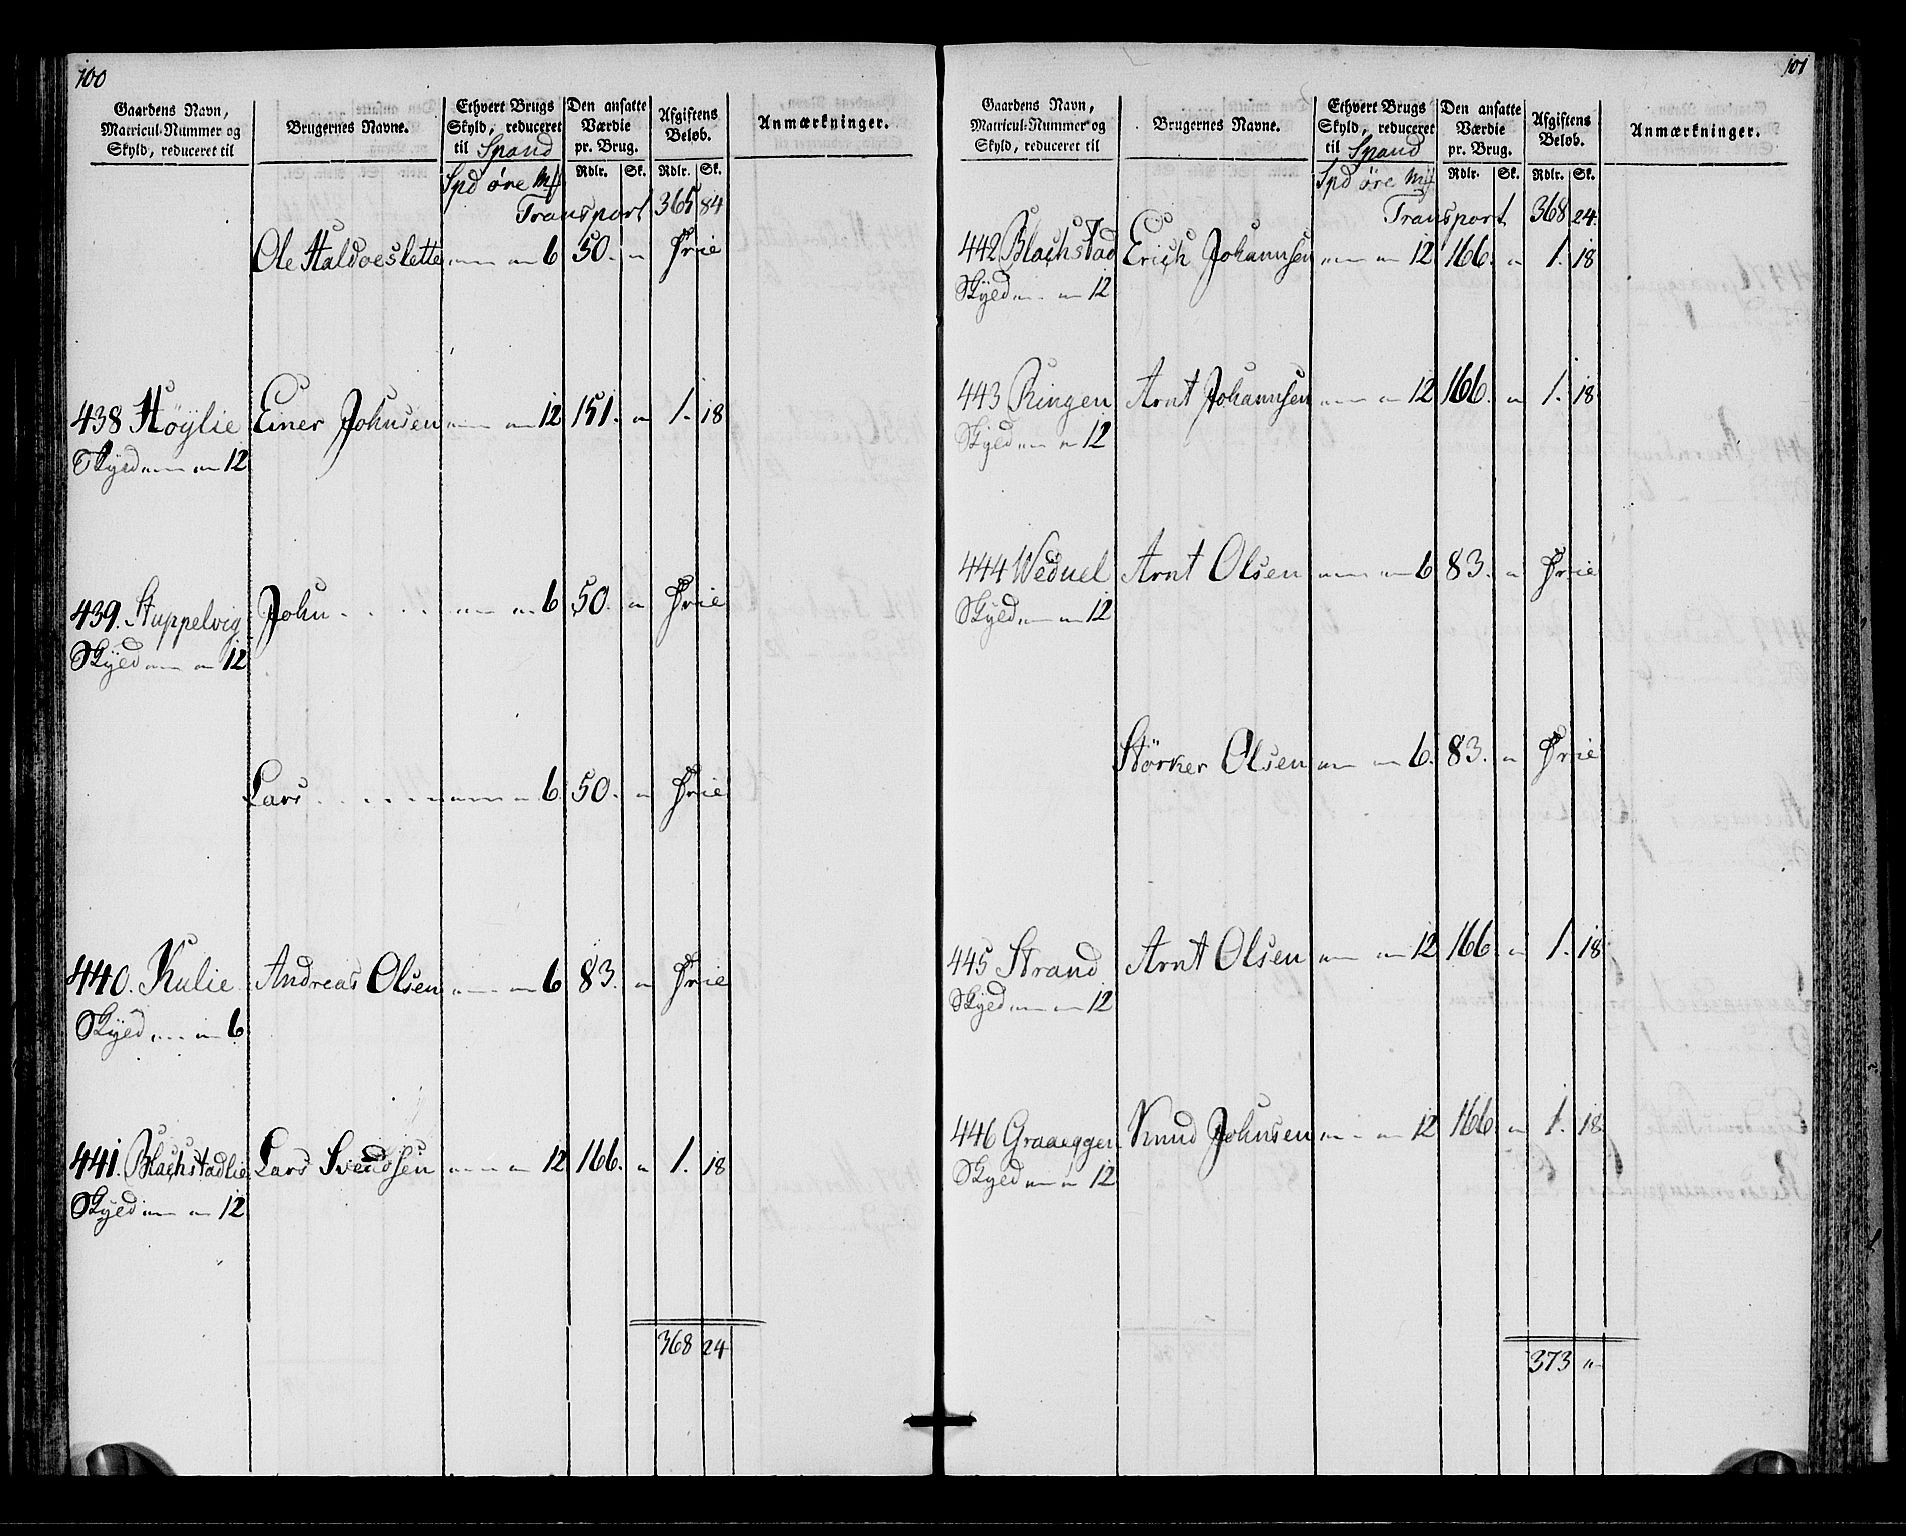 100
Gaardens Navn, Matricul-Nummer og Skyld, reduceret til | Brugernes Navne. | Ethvert Brugs Skyld, reduceret til Spand | Den ansatte Værdie pr. Brug. | Afgiftens Beløb. | Anmærkninger.
Spd öre Mf | Rdlr. | Sk. | Rdlr. | Sk.
Transport 365 84
Ole Haldoeslette „ „ 6 50. „ Frie
438 Höylie Einer Johnsen „ „ 12 151. „ 1. 18
Skyld „ „ 12
439. Stuppelvig John . . . . „ „ 6 50. „ Frie
Skyld „ „ 12
Lars . . . . „ „ 6 50. „ Frie
440. Kulie Andreas Olsen „ „ 6 83. „ Frie
Skyld „ „ 6
441. Blachstadlie Lars Svendsen „ „ 12 166. „ 1. 18
Skyld „ „ 12
368 24
101
Gaardens Navn, Matricul-Nummer og Skyld, reduceret til | Brugernes Navne. | Ethvert Brugs Skyld, reduceret til Spand | Den ansatte Værdie pr. Brug. | Afgiftens Beløb. | Anmærkninger.
Spd öre Mf | Rdlr. | Sk. | Rdlr. | Sk.
Transport 368 24
442 Blachstad Erich Johannsen „ „ 12 166. „ 1. 18
Skyld „ „ 12
443 Ringen Arnt Johannsen „ „ 12 166. „ 1. 18
Skyld „ „ 12
444 Weduel Arnt Olsen „ „ 6 83. „ Frie
Skyld „ „ 12
Störker Olsen „ „ 6. 83. „ Frie
445 Strand Arnt Olsen „ „ 12 166 „ 1. 18
Skyld „ „ 12
446 Graaeggen Knud Johnsen „ „ 12 166 „ 1. 18
Skyld „ „ 12
373 „